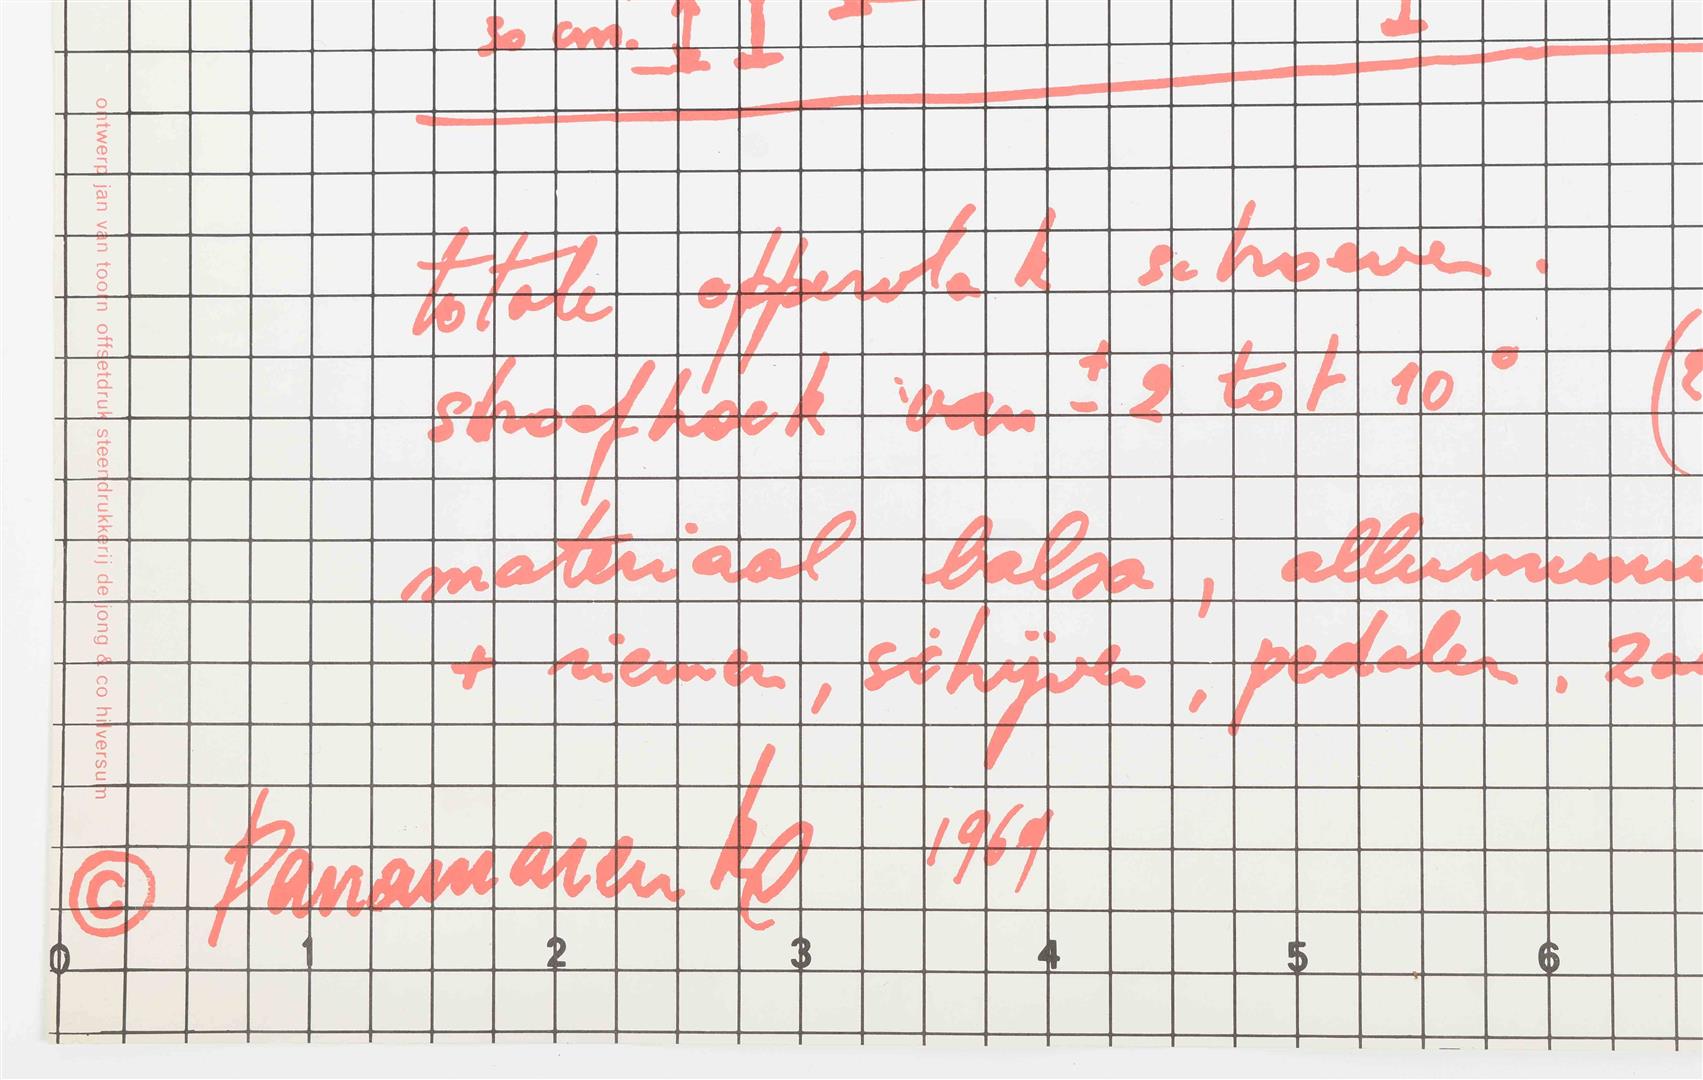 30 cm.
totale oppervlak schroeven.
schroefhoek van ± 2 tot 10°
materiaal balsa, alluminium
+ riemen, schijven, pedalen,
© Panamarenko 1969
0 1 2 3 4 5 6
ontwerp jan van toorn offsetdruk steendrukkerij de jong & co hilversum